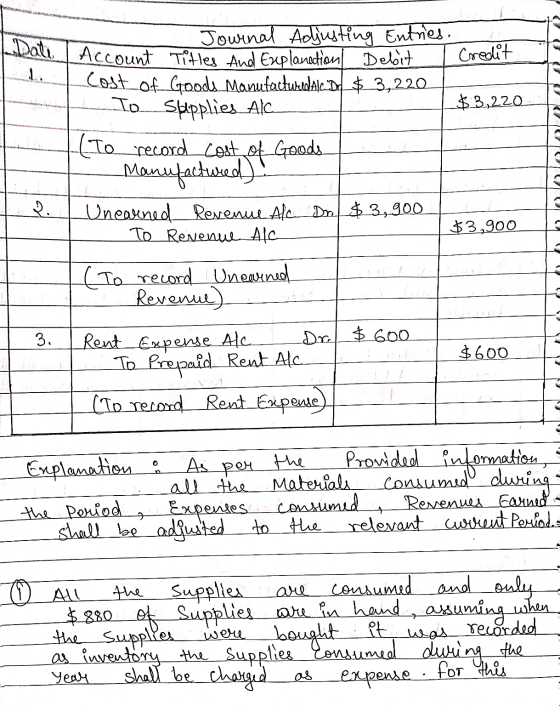 Journal Adjusting Entries.
Date. Account Titles And Explanation Debit Credit
1. Cost of Goods Manufactured A/c Dr $ 3,220
To Supplies A/c $3,220
(To record Cost of Goods
Manufactured).
2. Unearned Revenue A/c Dr. $ 3,900
To Revenue A/c $3,900
(To record Unearned
Revenue)
3. Rent Expense A/c Dr. $ 600
To Prepaid Rent A/c $600
(To record Rent Expense)
Explanation : As per the Provided information,
all the Materials consumed during
the Period, Expenses consumed, Revenues Earned
shall be adjusted to the relevant current Period.
① All the Supplies are consumed and only
$ 880 of Supplies are in hand, assuming when
the Supplies were bought it was recorded
as inventory the Supplies Consumed during the
year shall be charged as expense. for this